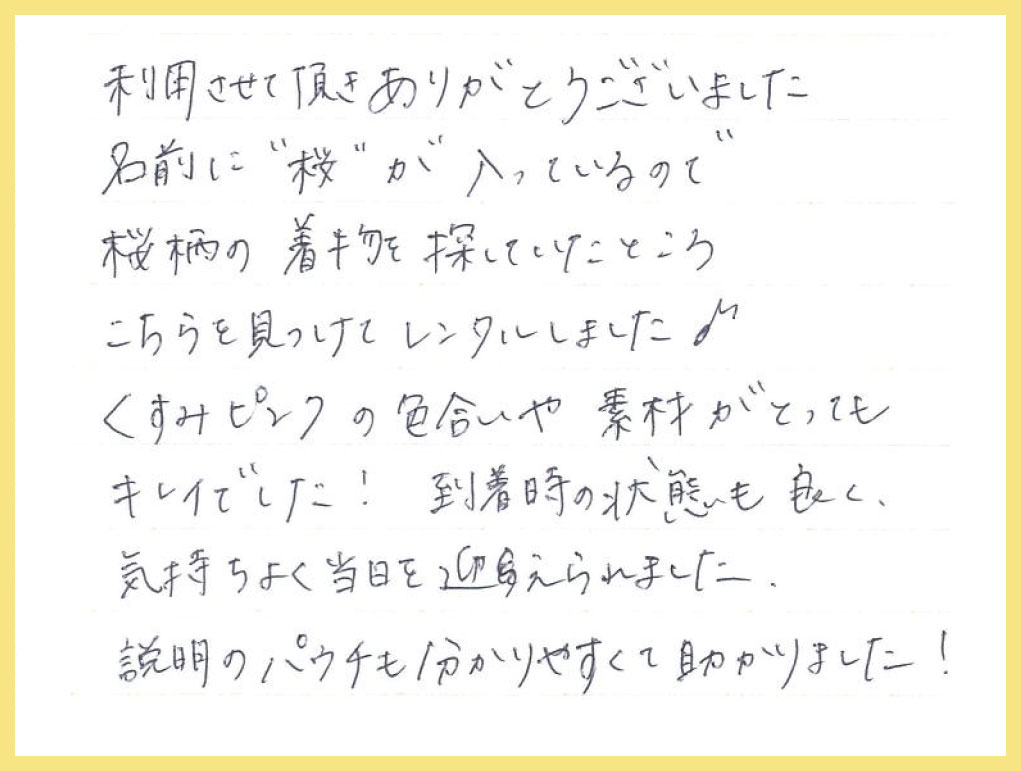 利用させて頂きありがとうございました
名前に"桜"が入っているので
桜柄の着物を探していたところ
こちらを見つけてレンタルしました♪
くすみピンクの色合いや素材がとっても
キレイでした！ 到着時の状態も良く、
気持ちよく当日を迎えられました．
説明のパウチも分かりやすくて助かりました！